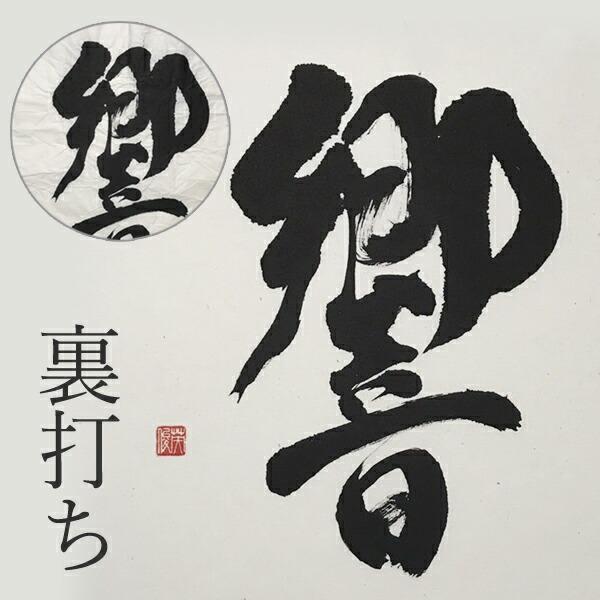 響
裏打ち